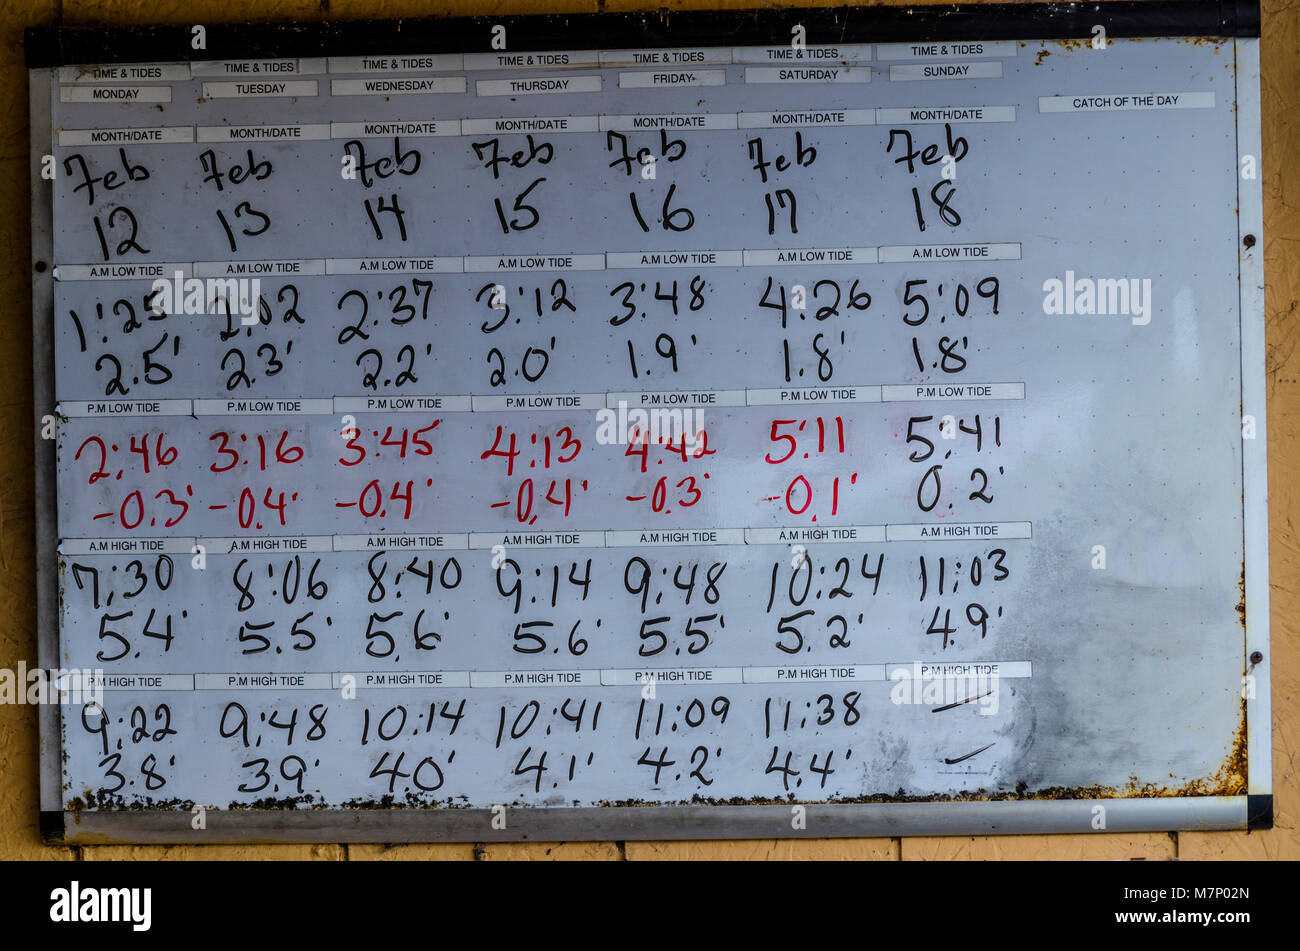 TIME & TIDES TIME & TIDES TIME & TIDES TIME & TIDES TIME & TIDES TIME & TIDES TIME & TIDES
MONDAY TUESDAY WEDNESDAY THURSDAY FRIDAY SATURDAY SUNDAY
CATCH OF THE DAY
MONTH/DATE MONTH/DATE MONTH/DATE MONTH/DATE MONTH/DATE MONTH/DATE MONTH/DATE
Feb Feb Feb Feb Feb Feb Feb
12 13 14 15 16 17 18
A.M LOW TIDE A.M LOW TIDE A.M LOW TIDE A.M LOW TIDE A.M LOW TIDE A.M LOW TIDE A.M LOW TIDE
1:25 2:02 2:37 3:12 3:48 4:26 5:09
2.5' 2.3' 2.2' 2.0' 1.9' 1.8' 1.8'
P.M LOW TIDE P.M LOW TIDE P.M LOW TIDE P.M LOW TIDE P.M LOW TIDE P.M LOW TIDE P.M LOW TIDE
2:46 3:16 3:45 4:13 4:42 5:11 5:41
-0.3' -0.4' -0.4' -0.4' -0.3' -0.1' 0.2'
A.M HIGH TIDE A.M HIGH TIDE A.M HIGH TIDE A.M HIGH TIDE A.M HIGH TIDE A.M HIGH TIDE A.M HIGH TIDE
7:30 8:06 8:40 9:14 9:48 10:24 11:03
5.4' 5.5' 5.6' 5.6' 5.5' 5.2' 4.9'
P.M HIGH TIDE P.M HIGH TIDE P.M HIGH TIDE P.M HIGH TIDE P.M HIGH TIDE P.M HIGH TIDE P.M HIGH TIDE
9:22 9:48 10:14 10:41 11:09 11:38 —
3.8' 3.9' 4.0' 4.1' 4.2' 4.4' —
alamy
Image ID: M7P02N
www.alamy.com